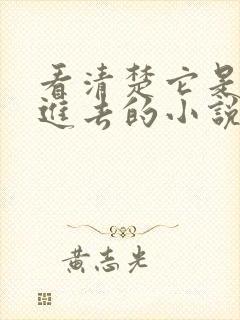 看清楚它是
進去的小說
黃志光